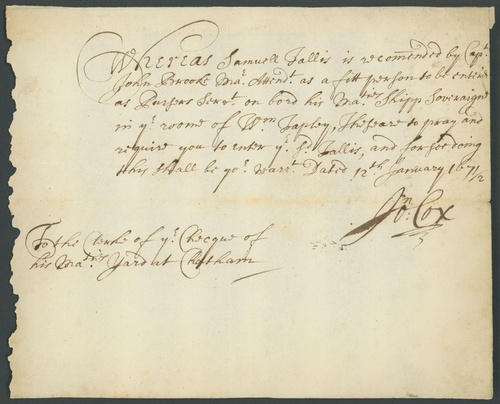 Whereas Samuell Tallis is recomended by Capt.
John Brooke Ma: Attendt. as a fitt person to be entered
as Pursers Servt. on bord his Maties Shipp Soveraigne
in ye. roome of Wm Tapley, These are to pray and
require you to enter ye. sd. Tallis, and for soe doing
this shall be yor. warrt. Dated 12th January 1671/2
Jon. Cox
To the Clerke of ye. Checque of
his Maties Yard at Chatham